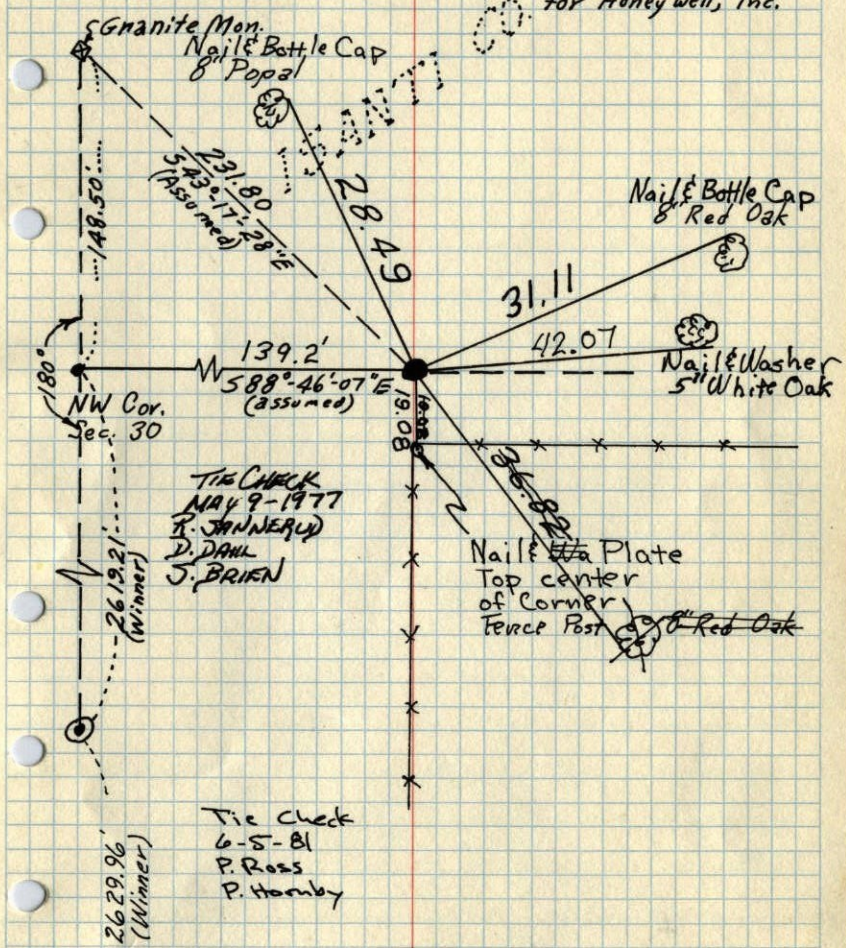 for Honeywell, Inc.
Granite Mon.
Nail & Bottle Cap
8" Popal
ISANTI CO.
148.50'
231.80
S43°-17'-28"E
(Assumed)
28.49
Nail & Bottle Cap
8" Red Oak
31.11
42.07
Nail & Washer
5" White Oak
139.2'
S88°-46'-07"E
(assumed)
180°
NW Cor.
Sec. 30
19.08
19.08
36.82
TIE CHECK
MAY 9-1977
R. JANNERUD
D. DAHL
J. BRIEN
Nail & Wa Plate
Top center
of Corner
Fence Post
8" Red Oak
2619.21'
(Winner)
Tie Check
6-5-81
P. Ross
P. Hornby
2629.96'
(Winner)